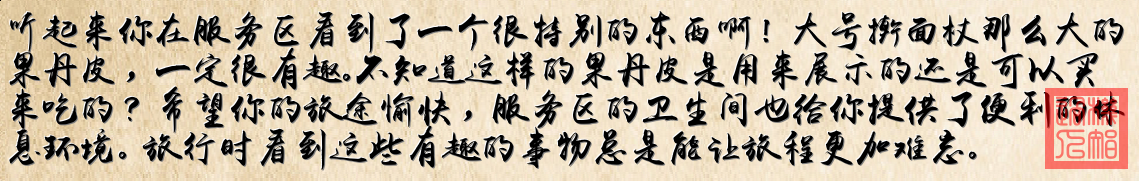 听起来你在服务区看到了一个很特别的东西啊！大号擀面杖那么大的
果丹皮，一定很有趣。不知道这样的果丹皮是用来展示的还是可以买
来吃的？希望你的旅途愉快，服务区的卫生间也给你提供了便利的休
息环境。旅行时看到这些有趣的事物总是能让旅程更加难忘。